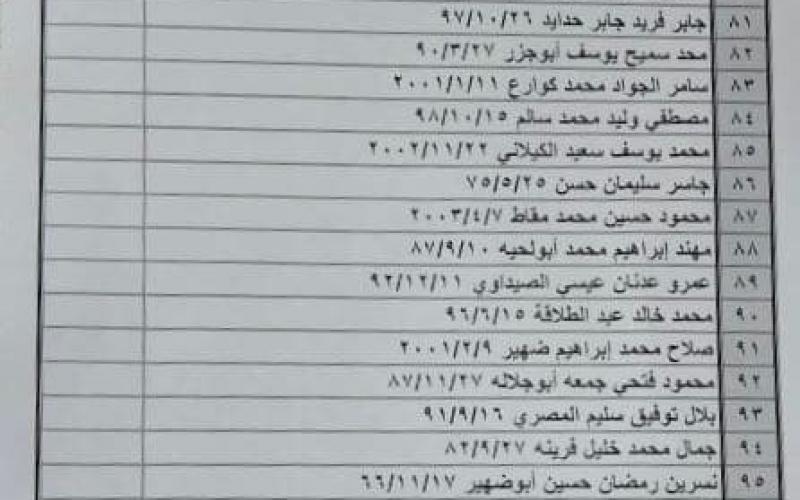 ٨١ جابر فريد جابر حدايد ٩٧/١٠/٢٦
٨٢ محد سميح يوسف أبوجزر ٩٠/٣/٢٧
٨٣ سامر الجواد محمد كوارع ٢٠٠١/١/١١
٨٤ مصطفي وليد محمد سالم ٩٨/١٠/١٥
٨٥ محمد يوسف سعيد الكيلاني ٢٠٠٢/١١/٢٢
٨٦ جاسر سليمان حسن ٧٥/٥/٢٥
٨٧ محمود حسين محمد مقاط ٢٠٠٣/٤/٧
٨٨ مهند إبراهيم محمد أبولحيه ٨٧/٩/١٠
٨٩ عمرو عدنان عيسي الصيداوي ٩٢/١٢/١١
٩٠ محمد خالد عبد الطلاقة ٩٦/٦/١٥
٩١ صلاح محمد إبراهيم ضهير ٢٠٠١/٢/٩
٩٢ محمود فتحي جمعه أبوجلاله ٨٧/١١/٢٧
٩٣ بلال توفيق سليم المصري ٩١/٩/١٦
٩٤ جمال محمد خليل قرينه ٨٢/٩/٢٧
٩٥ نسرين رمضان حسين أبوضهير ٦٦/١١/١٧